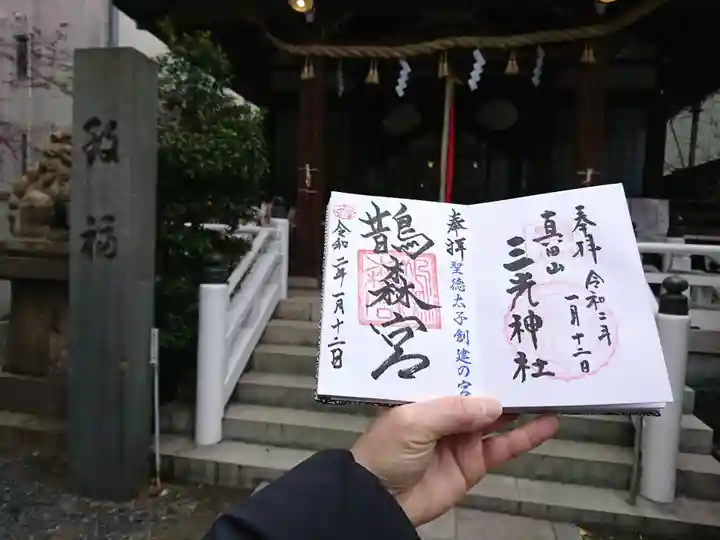 奉拝
令和二年
一月十二日
真田山
三光神社
奉拝
聖徳太子創建の宮
鵲森宮
令和二年一月十二日
福